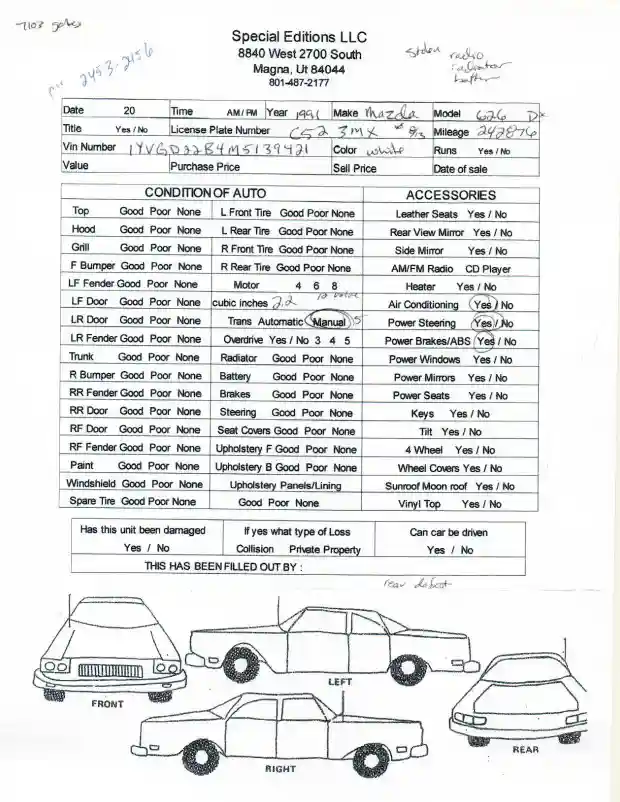 2453-2456
Special Editions LLC
8840 West 2700 South
Magna, Ut 84044
801-487-2177
stolen radio
radiator
battery
Date 20 Time AM / PM Year 1991 Make Mazda Model 626 DX
Title Yes / No License Plate Number C52 3MX 8/13 Mileage 242876
Vin Number 1YVGD22B4M5139421 Color white Runs Yes / No
Value Purchase Price Sell Price Date of sale
CONDITION OF AUTO ACCESSORIES
Top Good Poor None L Front Tire Good Poor None Leather Seats Yes / No
Hood Good Poor None L Rear Tire Good Poor None Rear View Mirror Yes / No
Grill Good Poor None R Front Tire Good Poor None Side Mirror Yes / No
F Bumper Good Poor None R Rear Tire Good Poor None AM/FM Radio CD Player
LF Fender Good Poor None Motor 4 6 8 Heater Yes / No
LF Door Good Poor None cubic inches 2.2 12 valve Air Conditioning Yes / No
LR Door Good Poor None Trans Automatic Manual 5 Power Steering Yes / No
LR Fender Good Poor None Overdrive Yes / No 3 4 5 Power Brakes/ABS Yes / No
Trunk Good Poor None Radiator Good Poor None Power Windows Yes / No
R Bumper Good Poor None Battery Good Poor None Power Mirrors Yes / No
RR Fender Good Poor None Brakes Good Poor None Power Seats Yes / No
RR Door Good Poor None Steering Good Poor None Keys Yes / No
RF Door Good Poor None Seat Covers Good Poor None Tilt Yes / No
RF Fender Good Poor None Upholstery F Good Poor None 4 Wheel Yes / No
Paint Good Poor None Upholstery B Good Poor None Wheel Covers Yes / No
Windshield Good Poor None Upholstery Panels/Lining Sunroof Moon roof Yes / No
Spare Tire Good Poor None Good Poor None Vinyl Top Yes / No
Has this unit been damaged If yes what type of Loss Can car be driven
Yes / No Collision Private Property Yes / No
THIS HAS BEEN FILLED OUT BY :
rear defrost
LEFT
FRONT
REAR
RIGHT